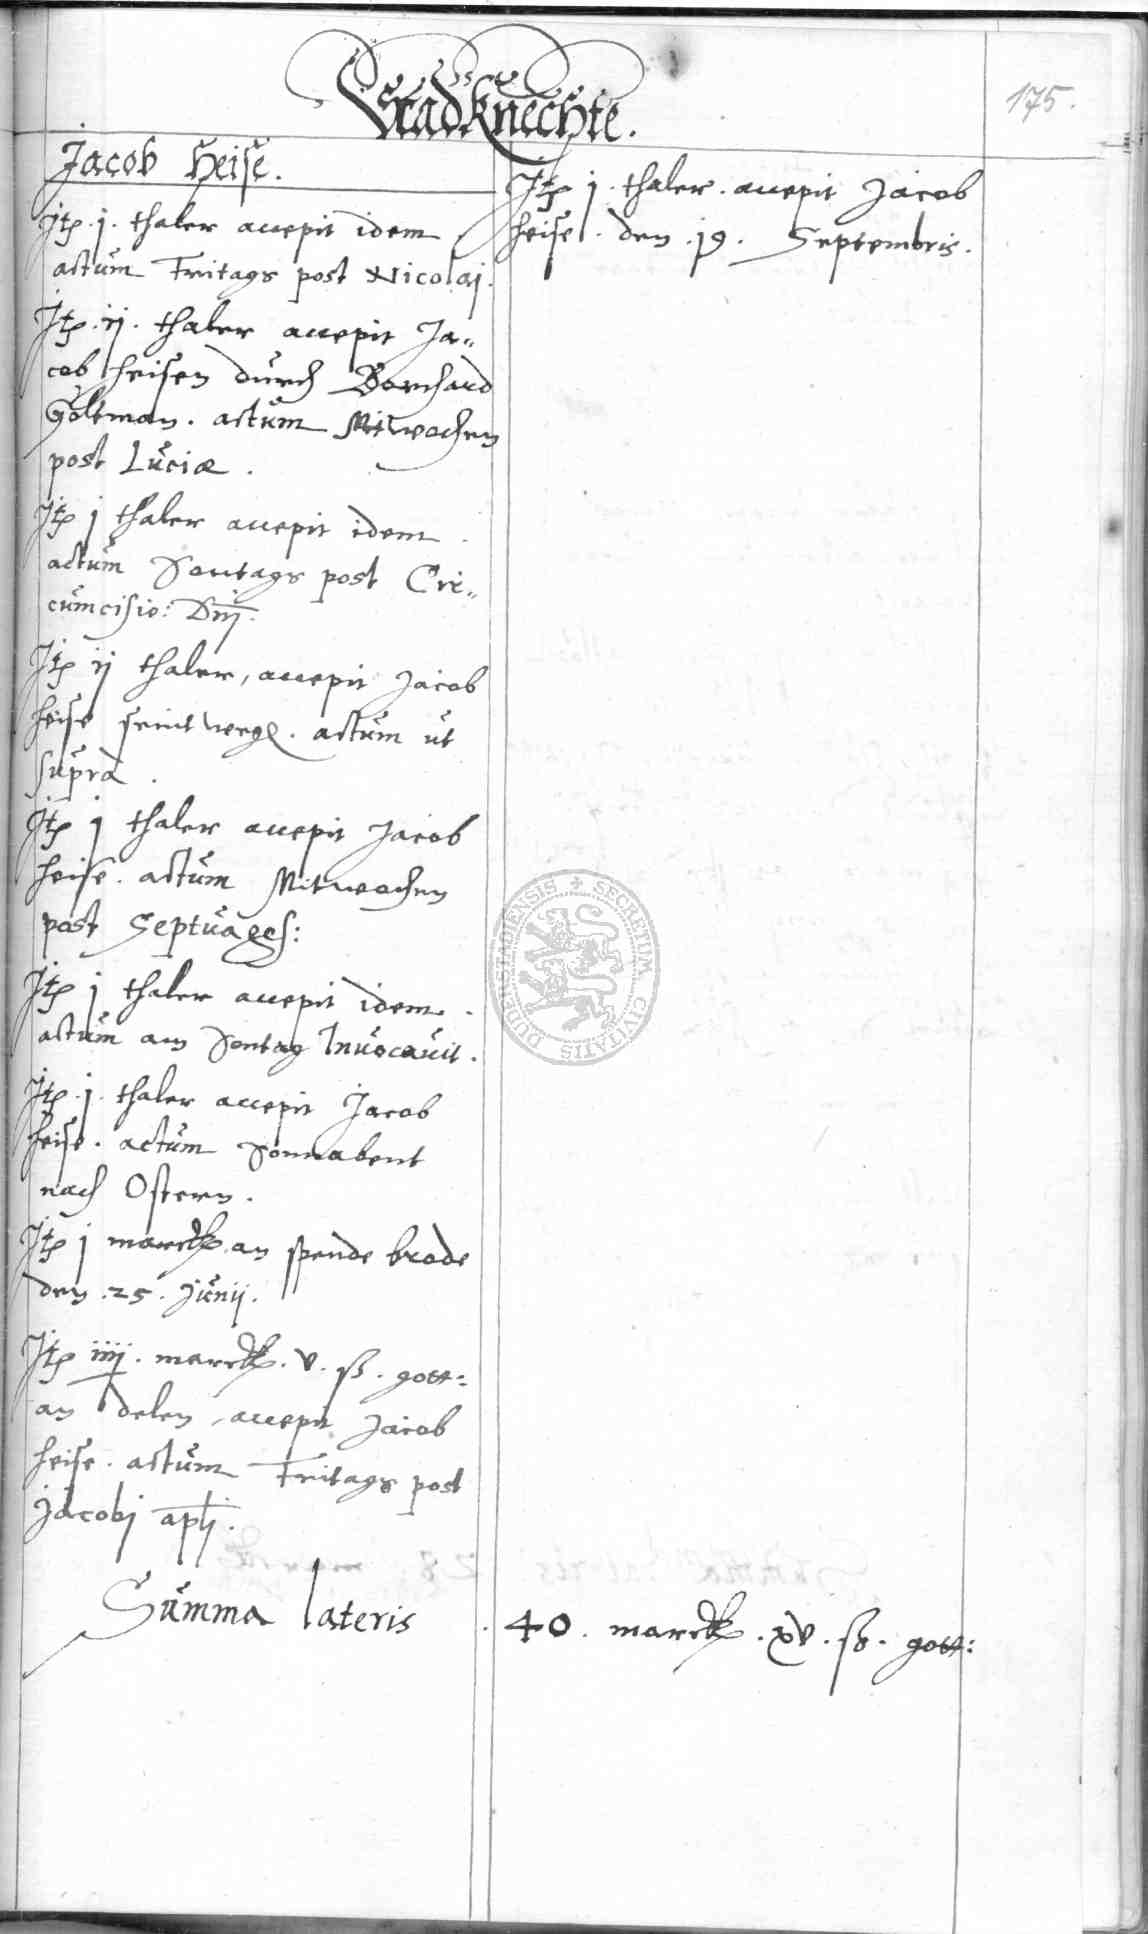 Stadknechte.
175.
Jacob Heise.
Itp. j. thaler accepit idem
actum Fritags post Nicolaj.
Itp. ij. thaler accepit Ja„
cob Heisen durch Borchard
Goltman. actum Mitwochen
post Luciæ.
Itp j thaler accepit idem
actum Sontags post Cir„
cumcisio: Dnj.
Itp ij thaler, accepit Jacob
Heise actum ut
supra.
Itp j thaler accepit Jacob
Heise. actum Mitwochen
post Septuages:
Itp j thaler accepit idem.
actum am Sontag Invocavit.
Itp. j. thaler accepit Jacob
Heise. actum Sonnabent
nach Ostern.
Itp j marck an spende brode
den .25. Junij.
Itp iiij. marck. v. ß. gott:
an delen, accepit Jacob
Heise. actum Fritags post
Jacobj aplj.
Itp j. thaler. accepit Jacob
Heise. den .19. Septembris.
Summa lateris . 40. marck. xv. ß. gott:
SECRETUM CIVITATIS DUDENSTADIENSIS